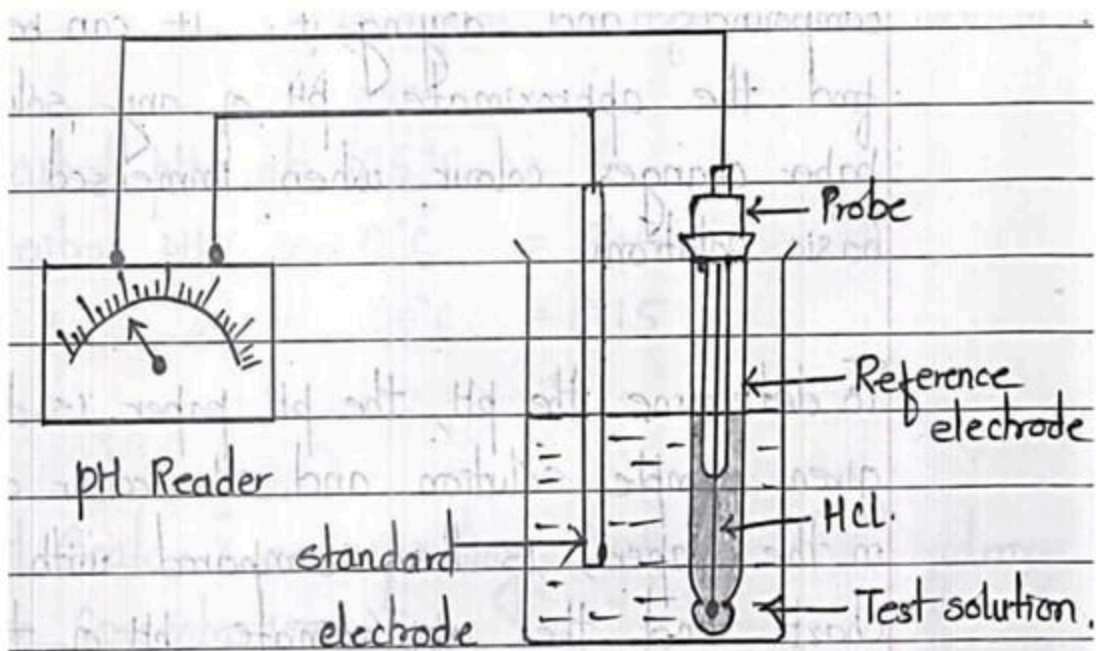 Probe
Reference
electrode
pH Reader
HCl.
standard
electrode
Test solution.